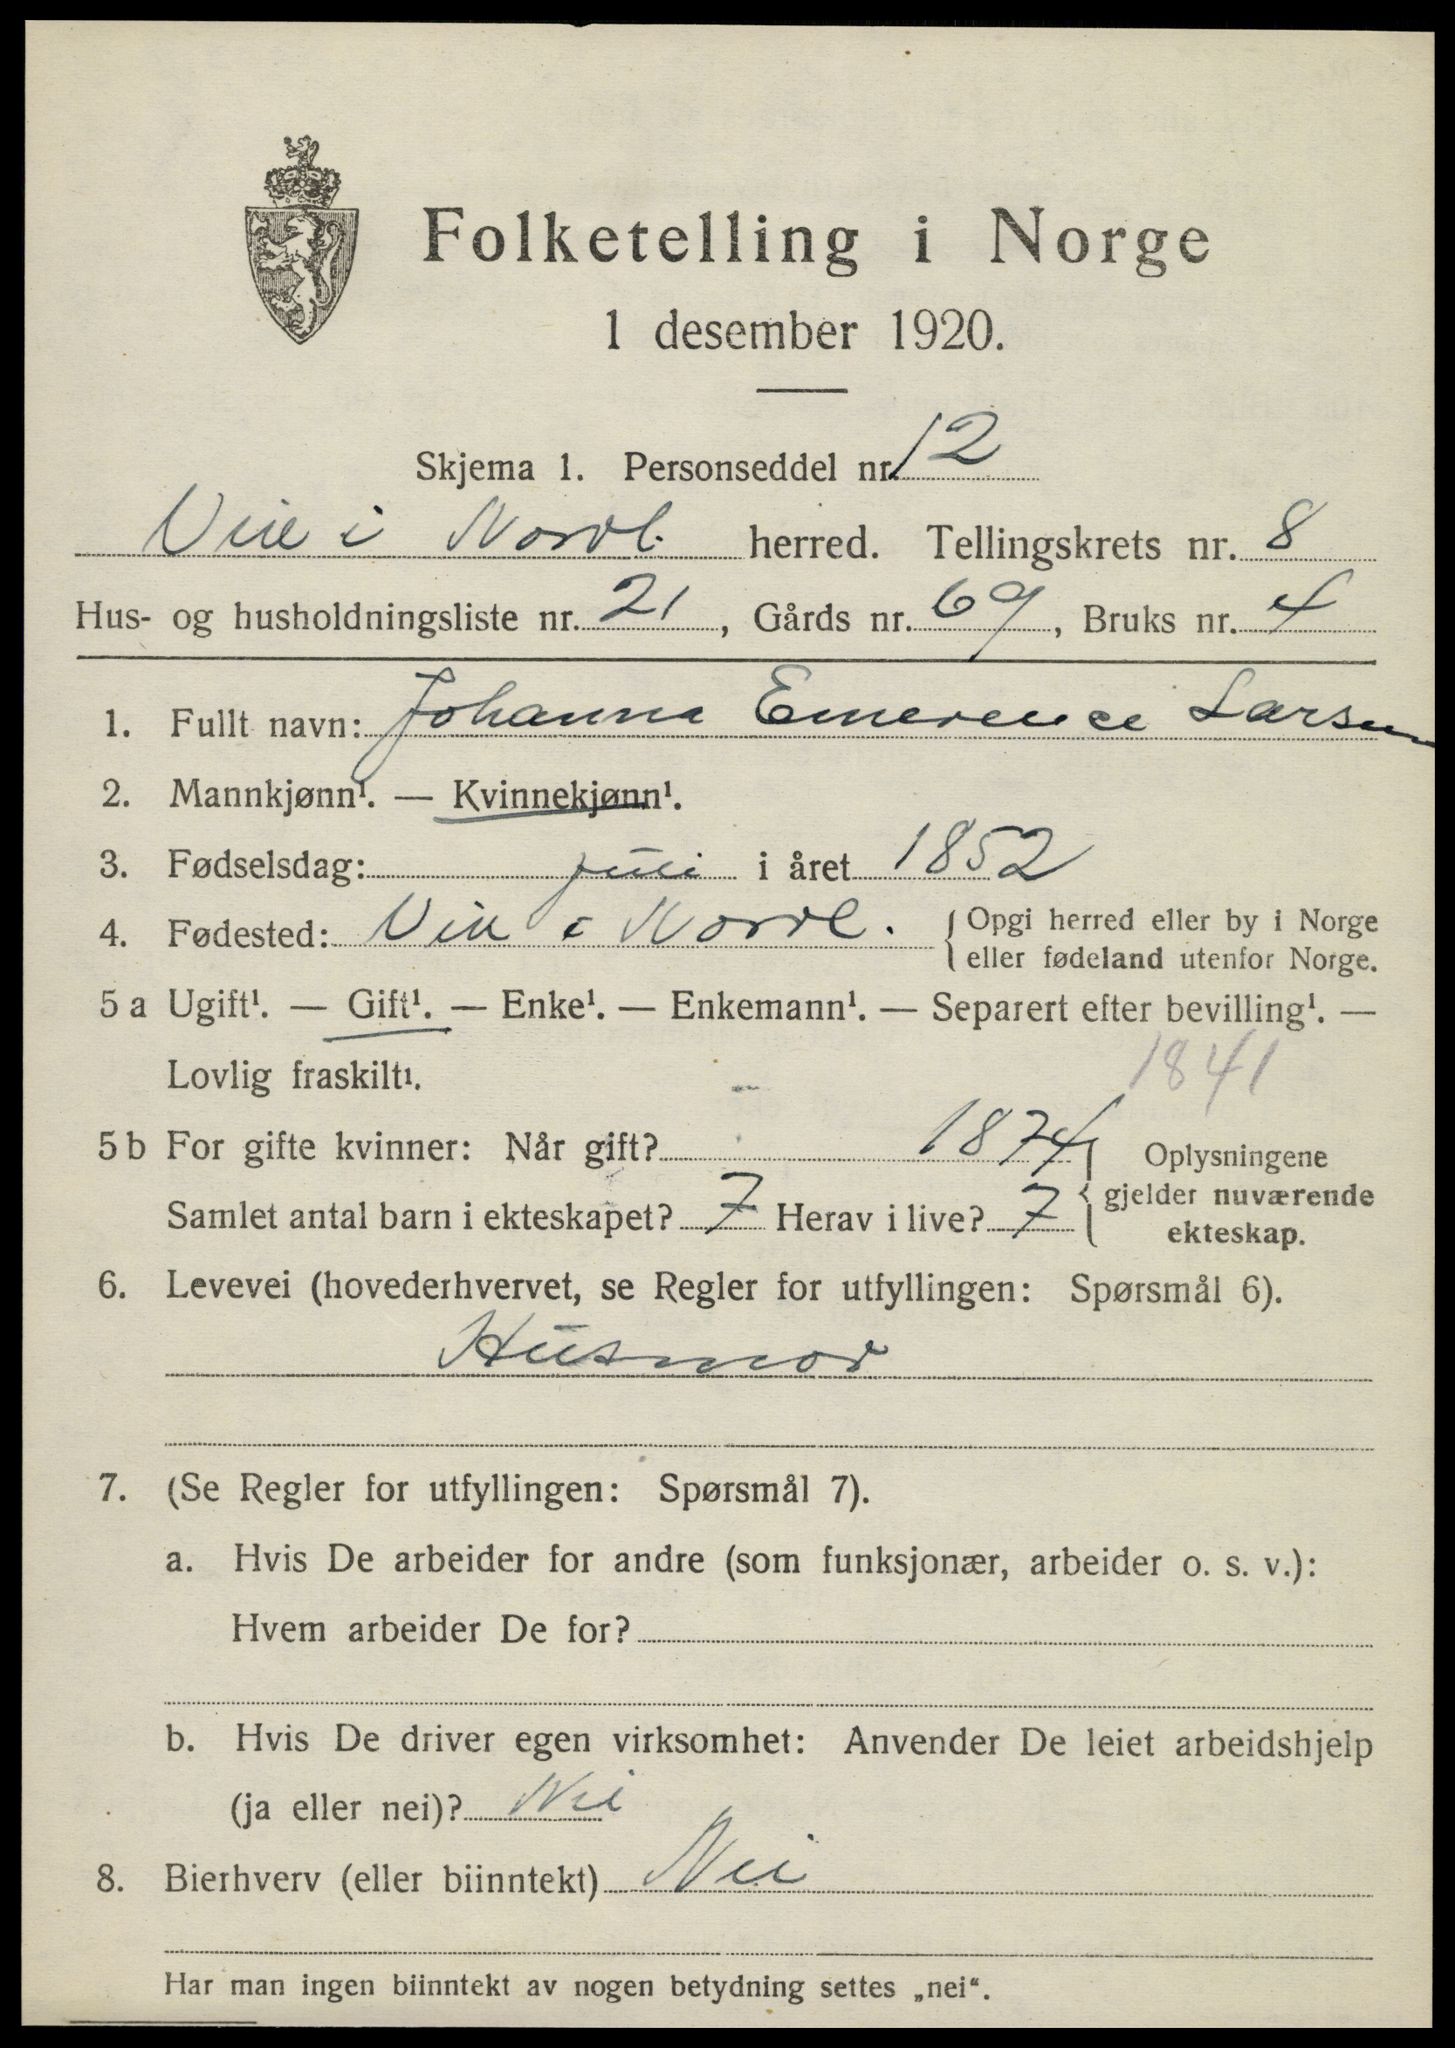 Folketelling i Norge
1 desember 1920.
Skjema 1. Personseddel nr. 12
i Nordl. herred. Tellingskrets nr. 8
Hus- og husholdningsliste nr. 21, Gårds nr. 69, Bruks nr. 4
1. Fullt navn: Johanna Emerence Larsen
2. Mannkjønn¹. — Kvinnekjønn¹.
3. Fødselsdag: juli i året 1852
4. Fødested: i Nordl. { Opgi herred eller by i Norge
eller fødeland utenfor Norge.
5 a Ugift¹. — Gift¹. — Enke¹. — Enkemann¹. — Separert efter bevilling¹. —
Lovlig fraskilt¹.
1841
5 b For gifte kvinner: Når gift? 1874
Samlet antal barn i ekteskapet? 7 Herav i live? 7
Oplysningene
gjelder nuværende
ekteskap.
6. Levevei (hovederhvervet, se Regler for utfyllingen: Spørsmål 6).
Husmor
7. (Se Regler for utfyllingen: Spørsmål 7).
a. Hvis De arbeider for andre (som funksjonær, arbeider o. s. v.):
Hvem arbeider De for?
b. Hvis De driver egen virksomhet: Anvender De leiet arbeidshjelp
(ja eller nei)? Nei
8. Bierhverv (eller biinntekt) Nei
Har man ingen biinntekt av nogen betydning settes „nei“.